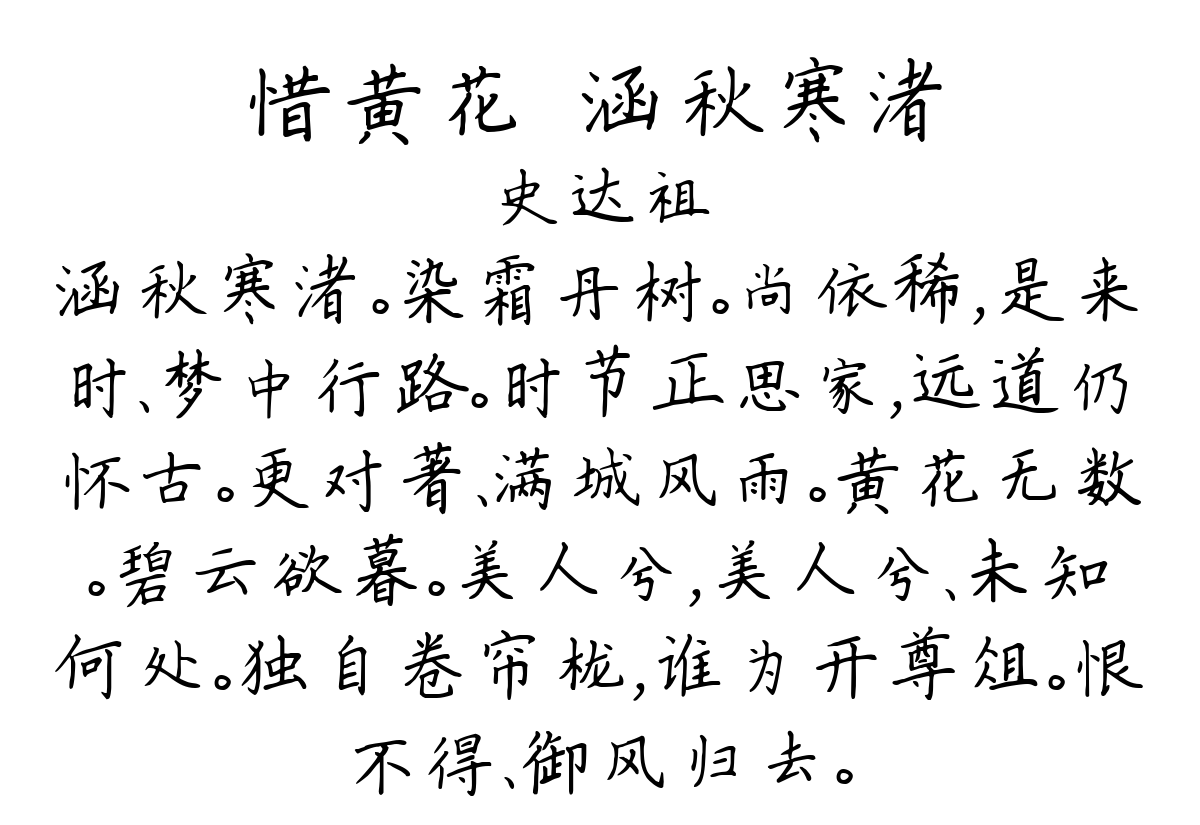 惜黄花 涵秋寒渚
史达祖
涵秋寒渚。染霜丹树。尚依稀,是来
时、梦中行路。时节正思家,远道仍
怀古。更对著、满城风雨。黄花无数
。碧云欲暮。美人兮,美人兮、未知
何处。独自卷帘栊,谁为开尊俎。恨
不得、御风归去。